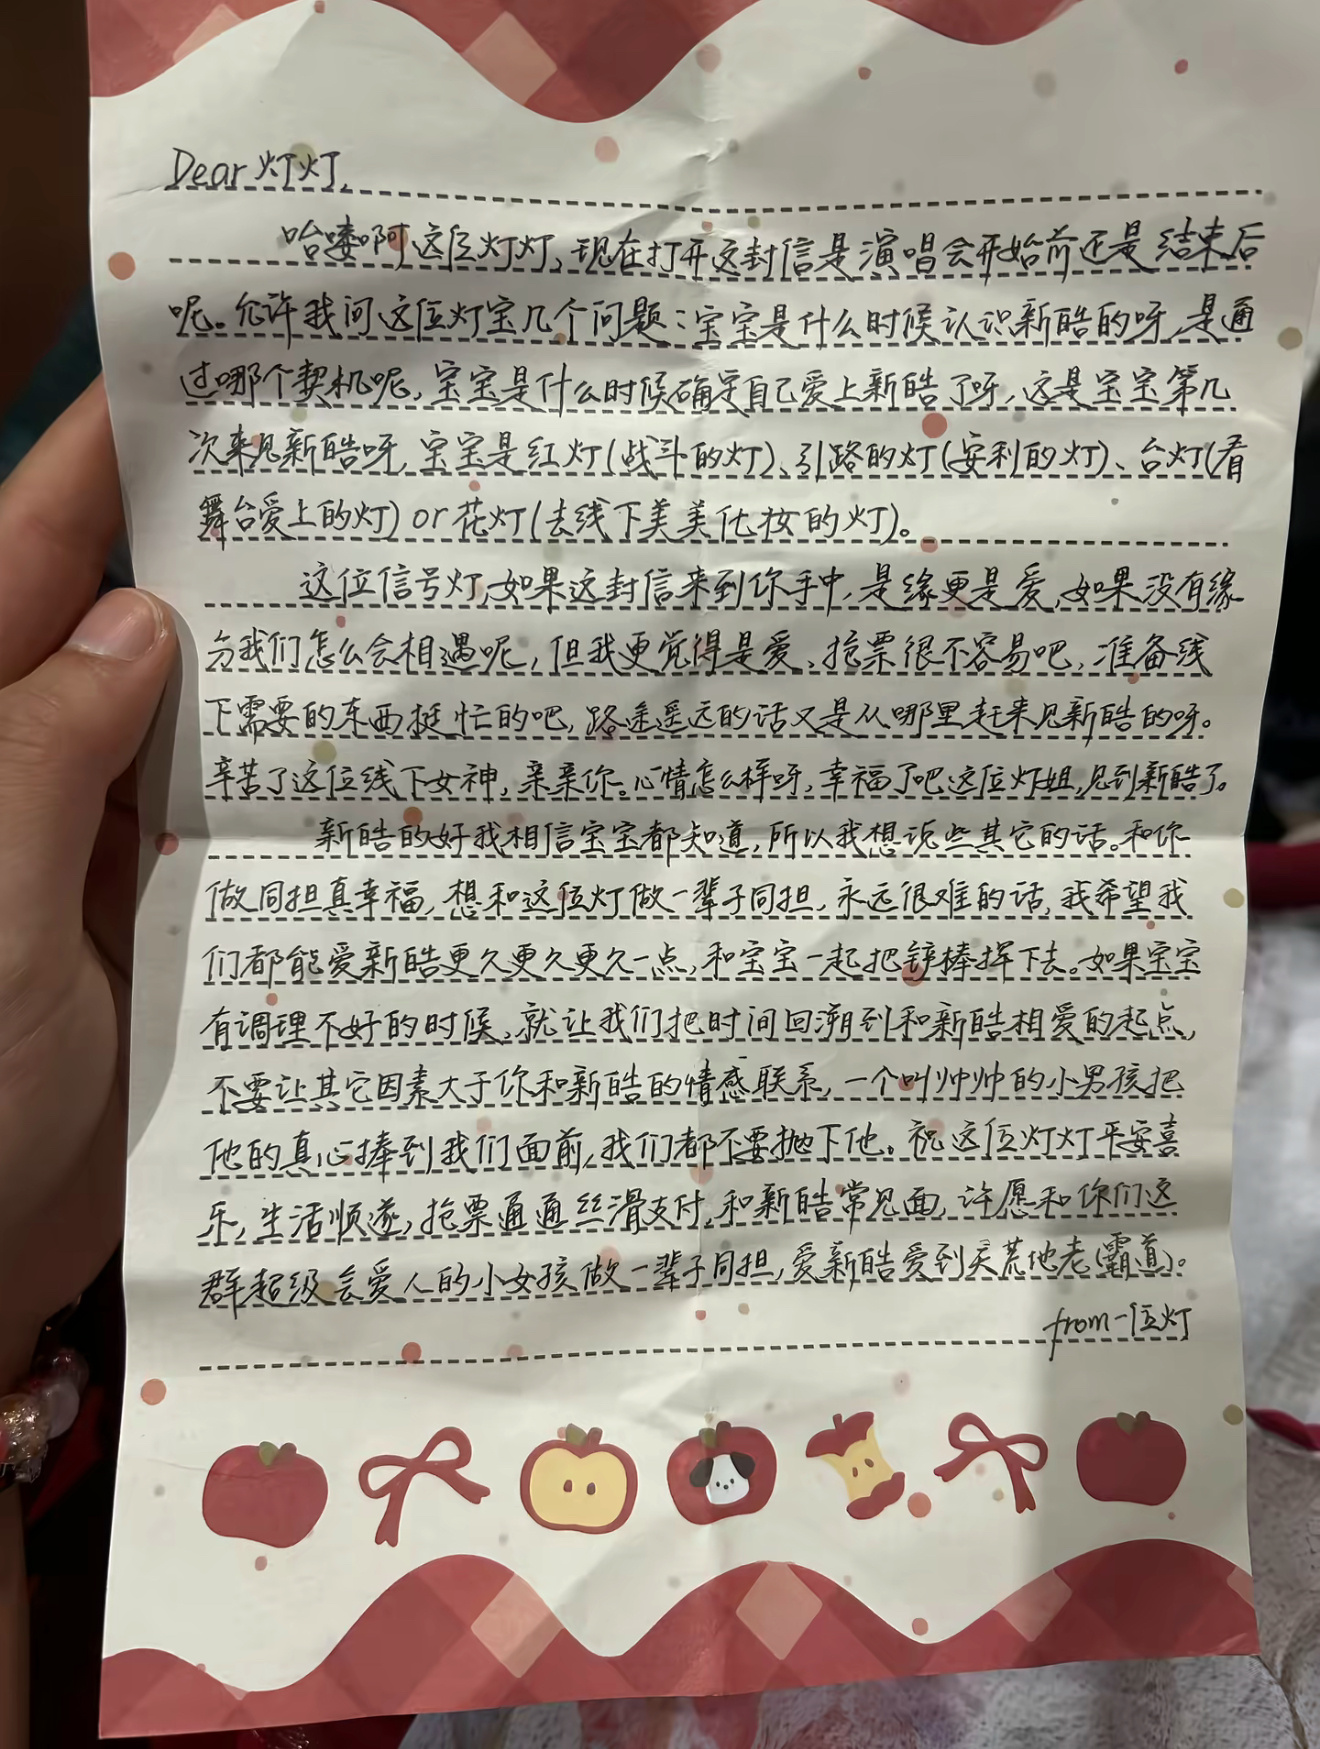 Dear 灯灯,
哈喽啊这位灯灯,现在打开这封信是演唱会开始前还是结束后
呢。允许我问这位灯宝几个问题:宝宝是什么时候认识新皓的呀,是通
过哪个契机呢,宝宝是什么时候确定自己爱上新皓了呀,这是宝宝第几
次来见新皓呀,宝宝是红灯(战斗的灯)、引路的灯(安利的灯)、台灯(看
舞台爱上的灯) or 花灯(去线下美美化妆的灯)。
这位信号灯,如果这封信来到你手中,是缘更是爱,如果没有缘
分我们怎么会相遇呢,但我更觉得是爱、抢票很不容易吧,准备线
下需要的东西挺忙的吧,路途遥远的话又是从哪里赶来见新皓的呀。
辛苦了这位线下女神,亲亲你。心情怎么样呀,幸福了吧这位灯姐,见到新皓了。
新皓的好我相信宝宝都知道,所以我想说些其它的话。和你
做同担真幸福,想和这位灯做一辈子同担,永远很难的话,我希望我
们都能爱新皓更久更久更久一点,和宝宝一起把锌棒挥下去。如果宝宝
有调理不好的时候,就让我们把时间回溯到和新皓相爱的起点,
不要让其它因素大于你和新皓的情感联系,一个叫帅帅的小男孩把
他的真心捧到我们面前,我们都不要抛下他。祝这位灯灯平安喜
乐,生活顺遂,抢票通通丝滑支付,和新皓常见面,许愿和你们这
群超级会爱人的小女孩做一辈子同担,爱新皓爱到天荒地老(霸道)。
from 一位灯